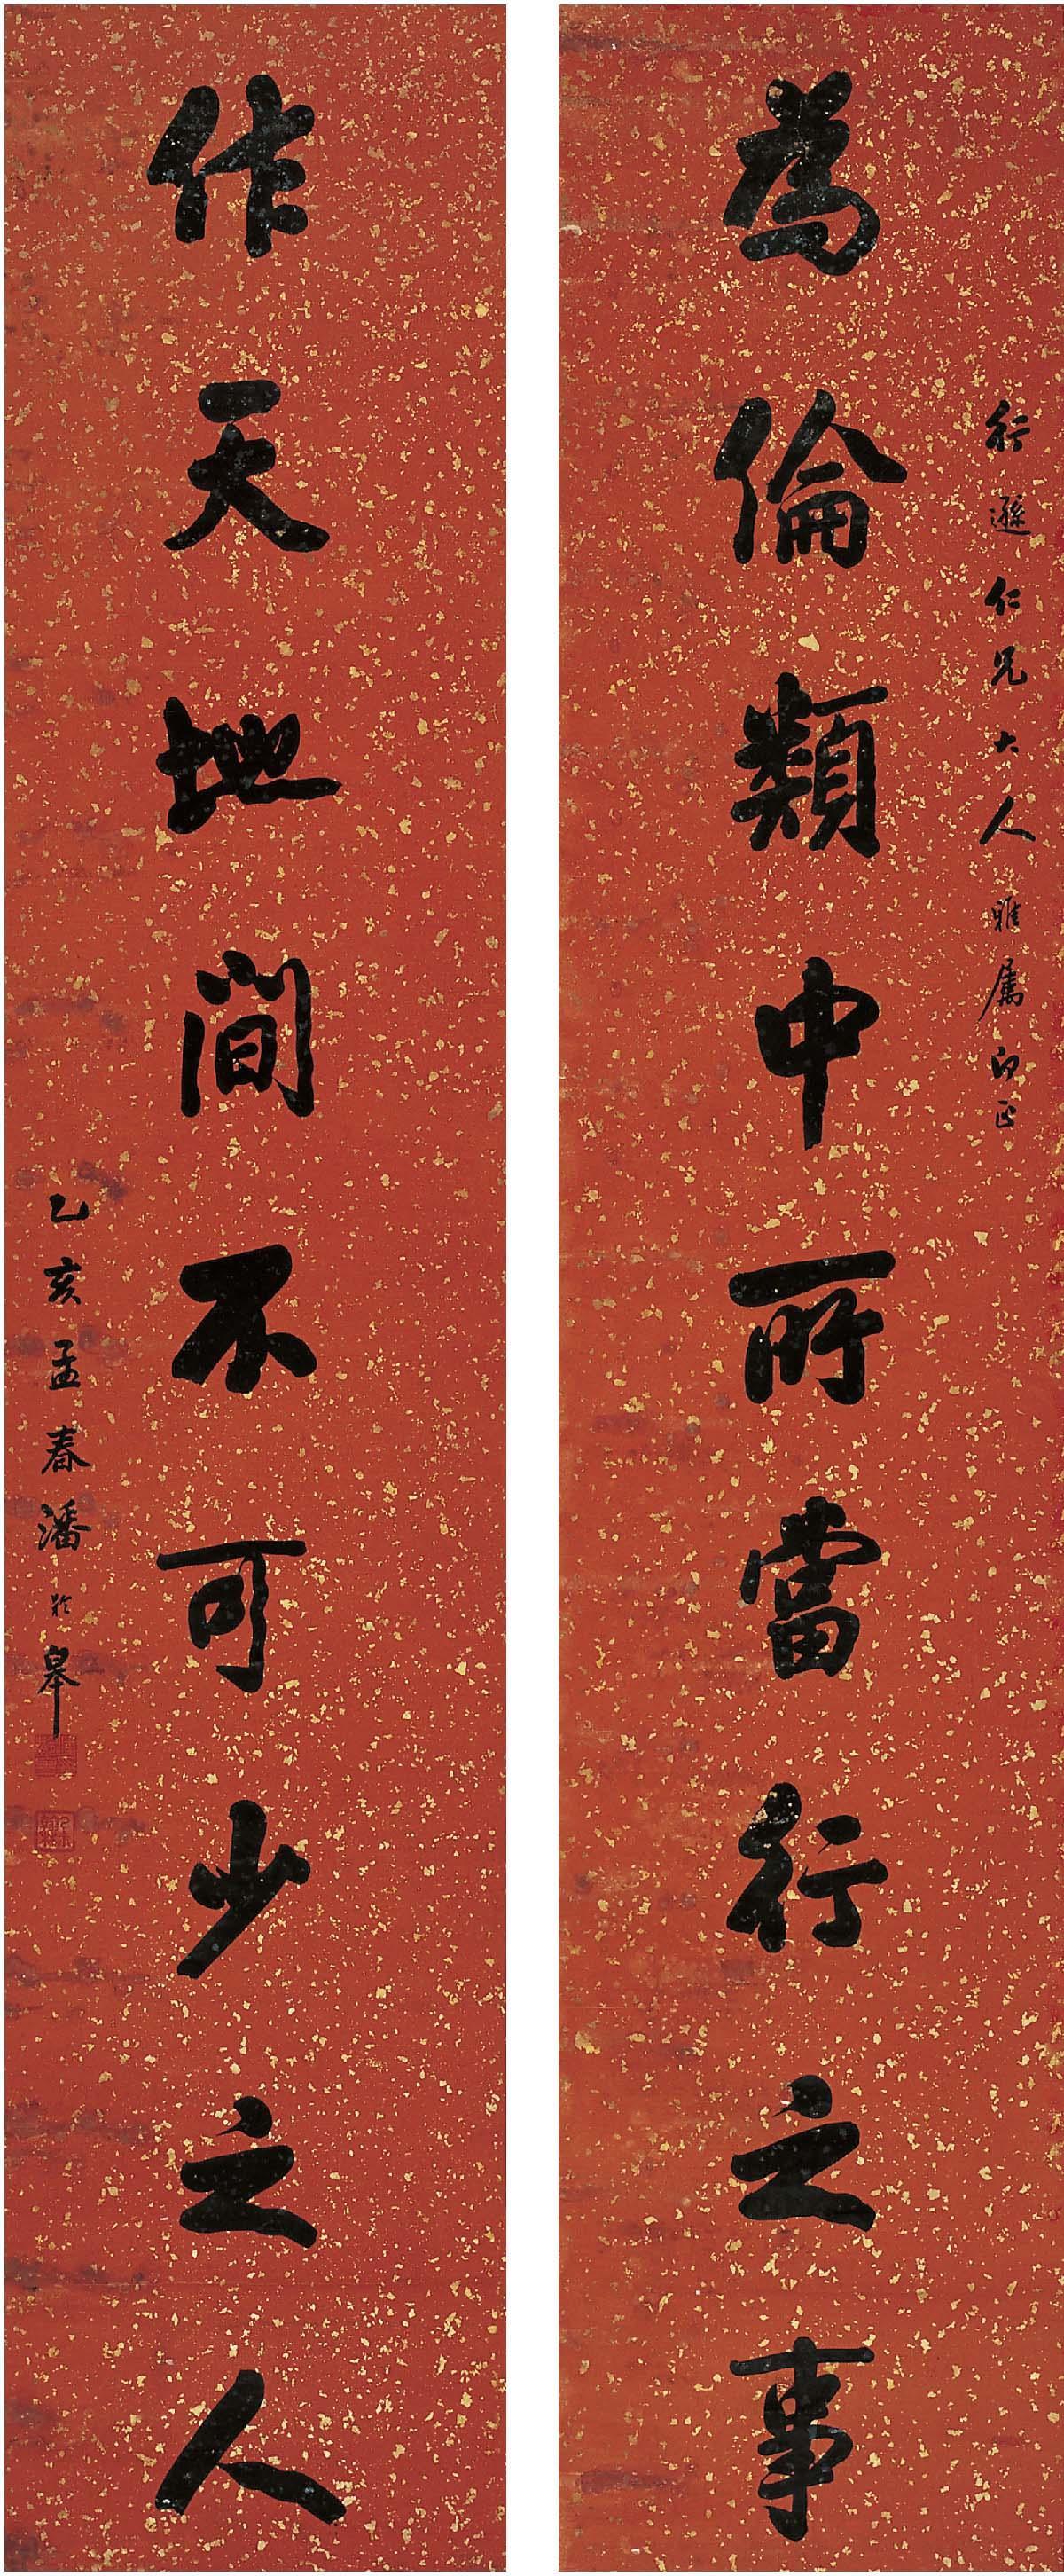 行遜仁兄大人雅屬即正
為倫類中所當行之事
作天地間不可少之人
乙亥孟春潘齡皋